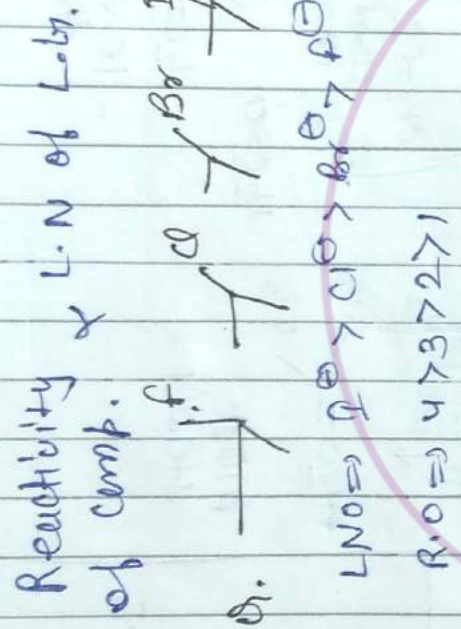 Reactivity ∝ L.N of L.Gr.
of comp.
Q. F Cl Br I
LNO ⇒ I⊖ > Cl⊖ > Br⊖ > F⊖
R.O ⇒ 4 > 3 > 2 > 1